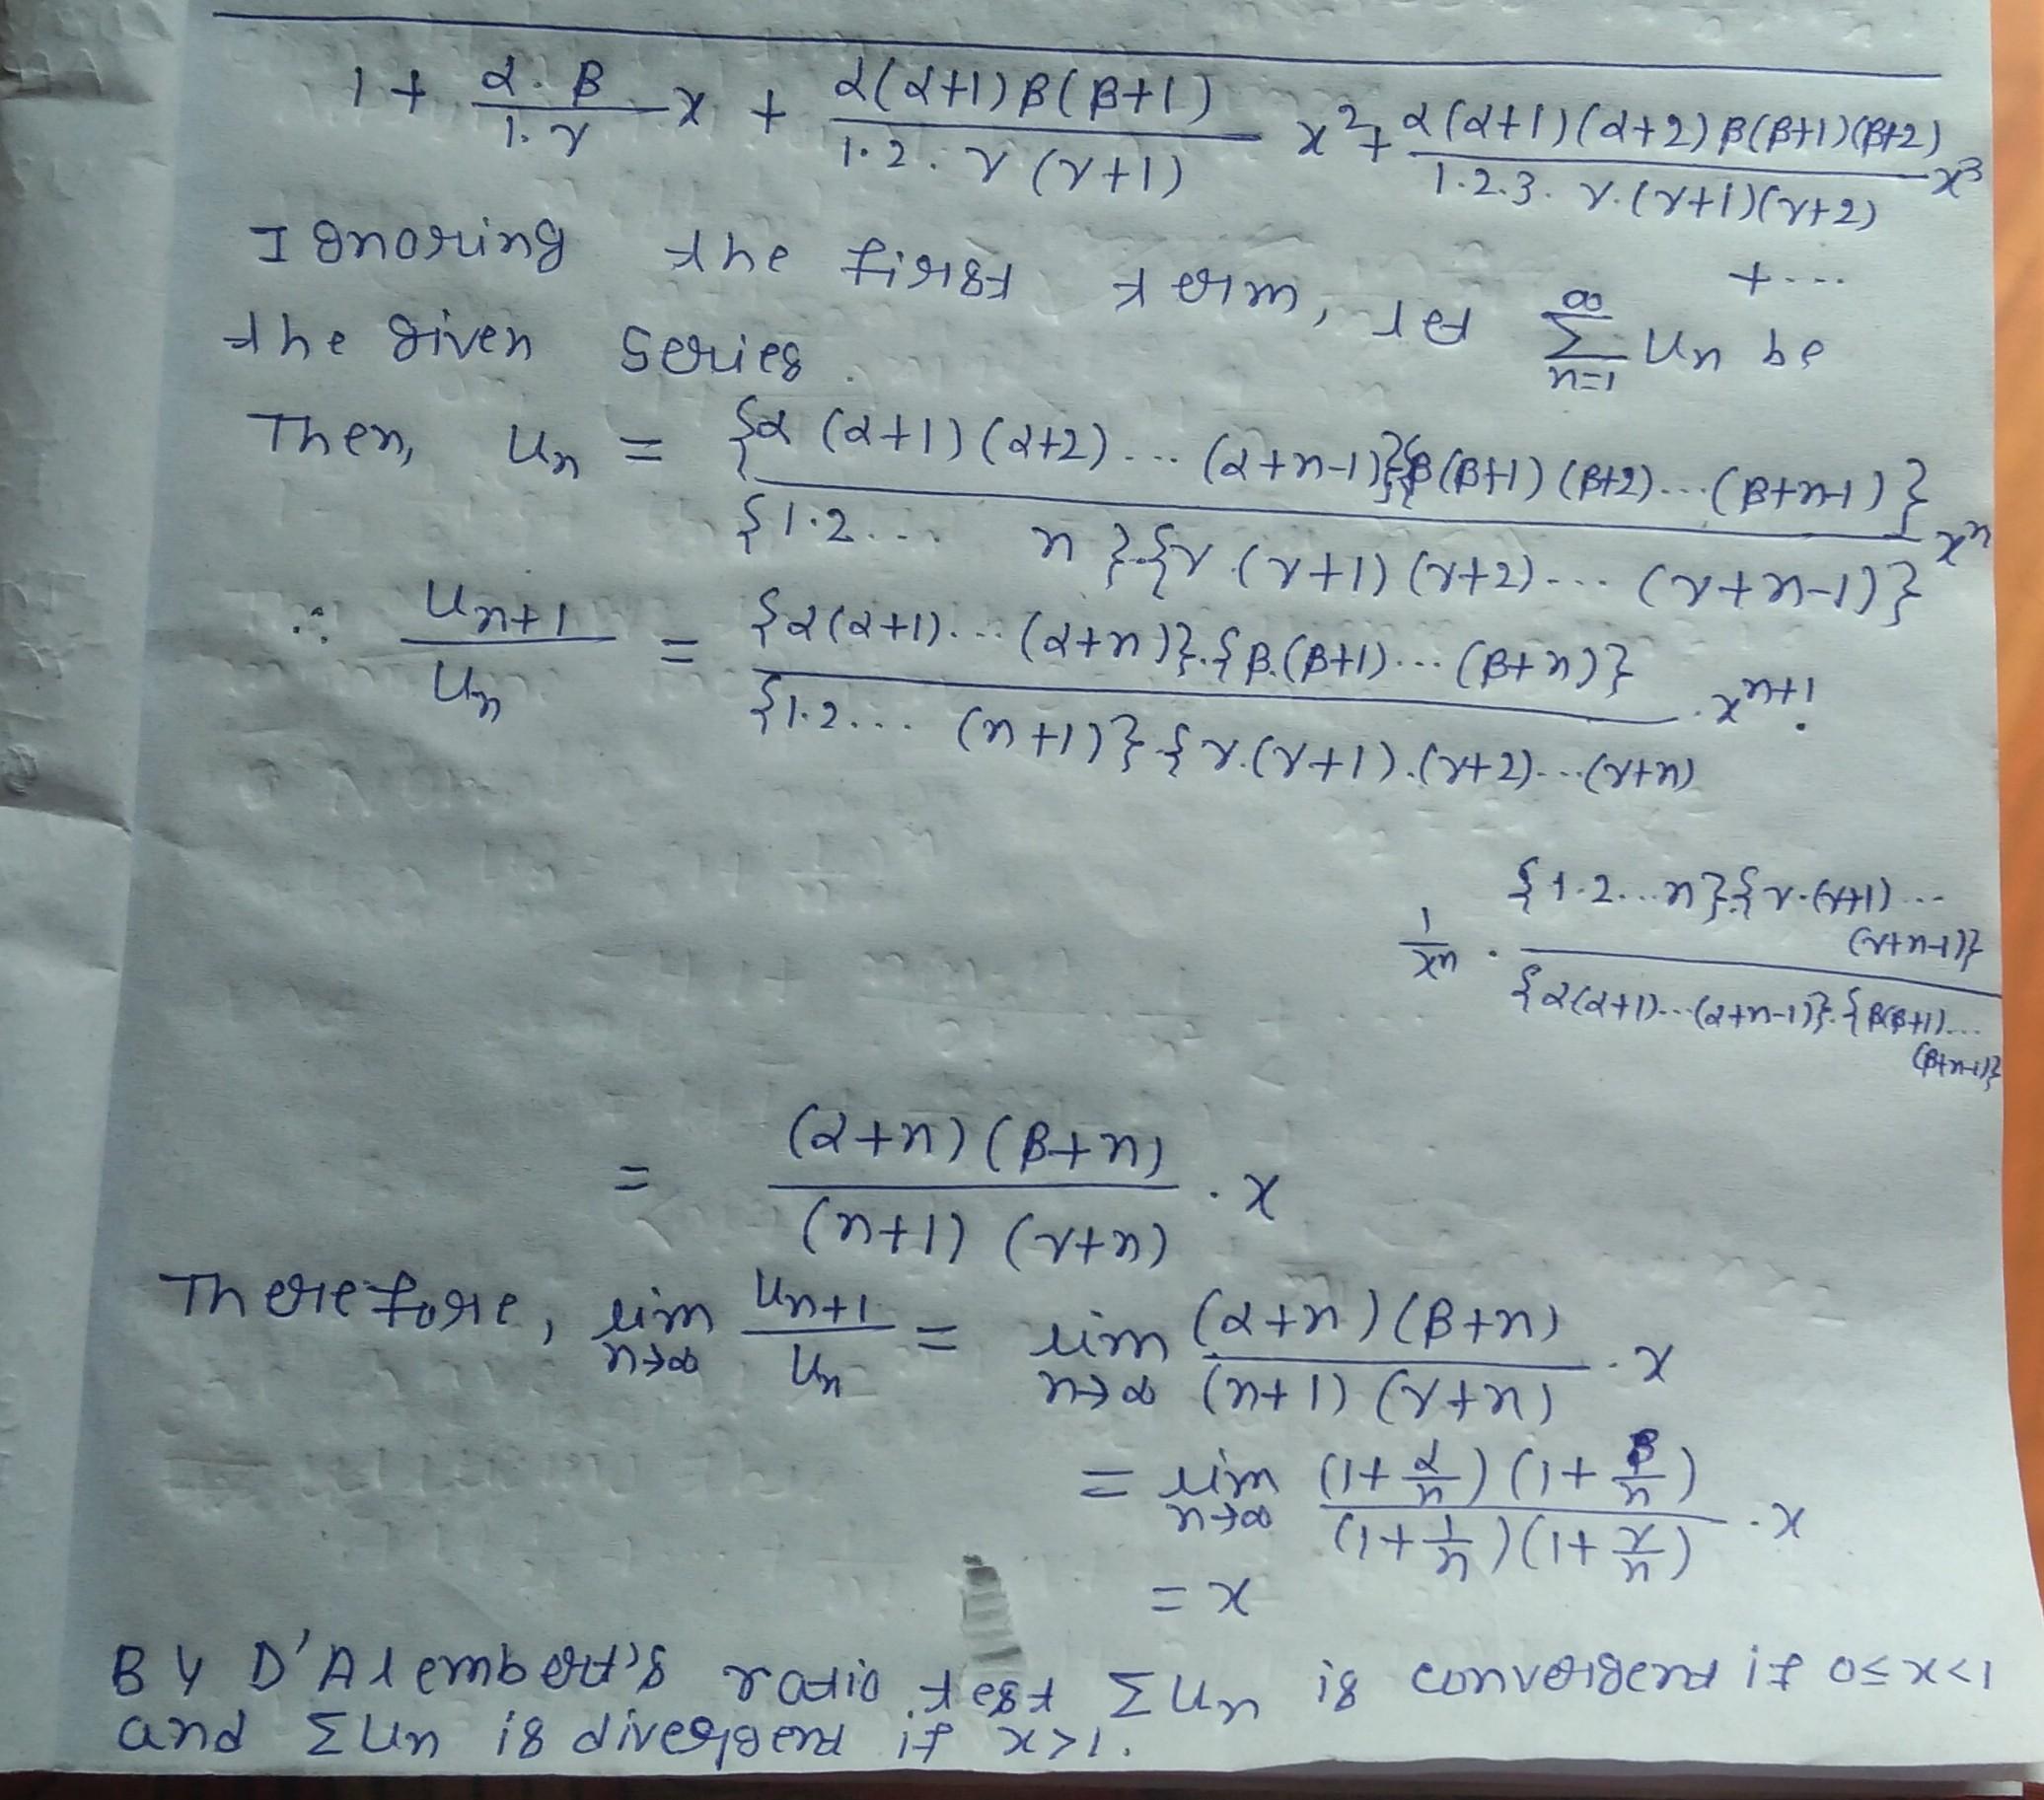 1 + α.β/1.γ x + α(α+1)β(β+1)/1.2.γ(γ+1) x² + α(α+1)(α+2)β(β+1)(β+2)/1.2.3.γ.(γ+1)(γ+2) x³
+ ...
Ignoring the first term, let ∞∑n=1 Un be
the given series.
Then, Un = {α(α+1)(α+2)...(α+n-1)}{β(β+1)(β+2)...(β+n-1)}/{1.2... n}.{γ.(γ+1)(γ+2)...(γ+n-1)} xⁿ
∴ Un+1/Un = {α(α+1)...(α+n)}.{β.(β+1)...(β+n)}/{1.2...(n+1)}.{γ.(γ+1).(γ+2)...(γ+n) .xⁿ⁺¹.
1/xⁿ . {1.2...n}.{γ.(γ+1)...(γ+n-1)}/{α(α+1)...(α+n-1)}.{β(β+1)...(β+n-1)}
= (α+n)(β+n)/(n+1)(γ+n) . x
Therefore, lim n→∞ Un+1/Un = lim n→∞ (α+n)(β+n)/(n+1)(γ+n) . x
= lim n→∞ (1+α/n)(1+β/n)/(1+1/n)(1+γ/n) . x
= x
By D'Alembert's ratio test ΣUn is convergent if 0≤x<1
and ΣUn is divergent if x>1.